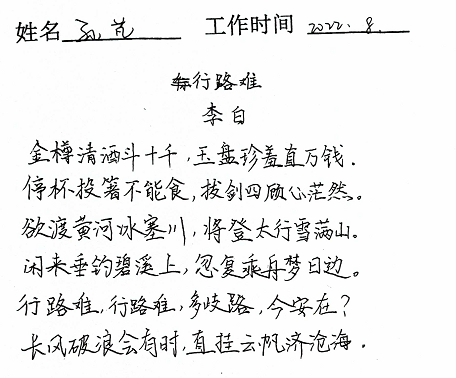 姓名 孙芃 工作时间 2022.8.
行路难
李白
金樽清酒斗十千，玉盘珍羞直万钱.
停杯投箸不能食，拔剑四顾心茫然。
欲渡黄河冰塞川，将登太行雪满山。
闲来垂钓碧溪上，忽复乘舟梦日边。
行路难，行路难，多岐路，今安在？
长风破浪会有时，直挂云帆济沧海.